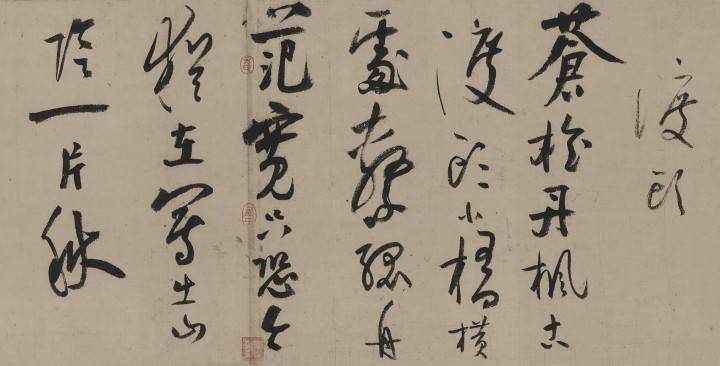 渡頭
蒼檜丹楓古
渡頭小橋橫
處繫孤舟
范寬只恐今
猶在寫出山
陰一片秋